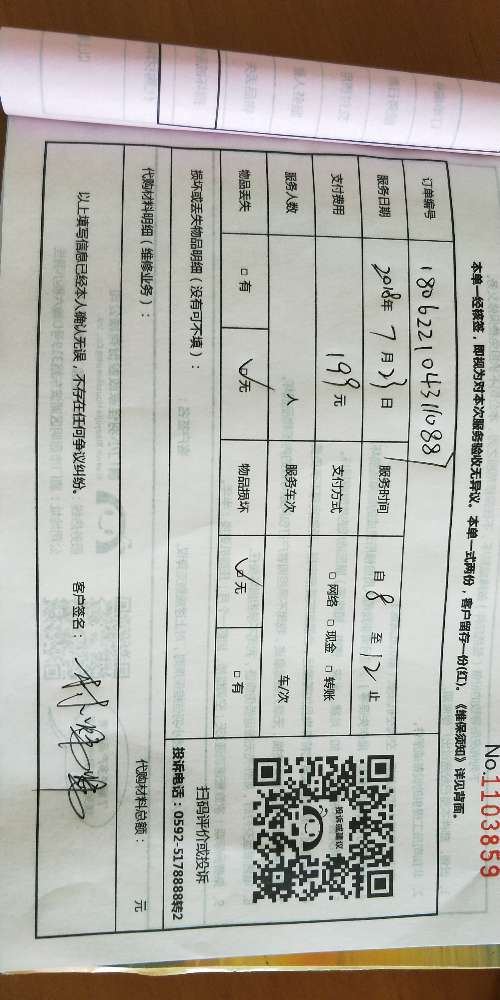 No.1103859
本单一经核签，即视为对本次服务验收无异议。本单一式两份，客户留存一份(红)。《维保须知》详见背面。
订单编号 180622104311088
服务日期 2018年 7月23日 服务时间 自 8 至 12 止
支付费用 199元 支付方式 □ 网络 □ 现金 □ 转账
服务人数 人 服务车次 车/次
物品丢失 □ 有 ☑无 物品损坏 ☑无 □ 有
损坏或丢失物品明细（没有可不填）：
投诉或建议
扫码评价或投诉
投诉电话：0592-5178888转2
代购材料明细（维修业务）： 代购材料总额： 元
以上填写信息已经本人确认无误，不存在任何争议纠纷。 客户签名：